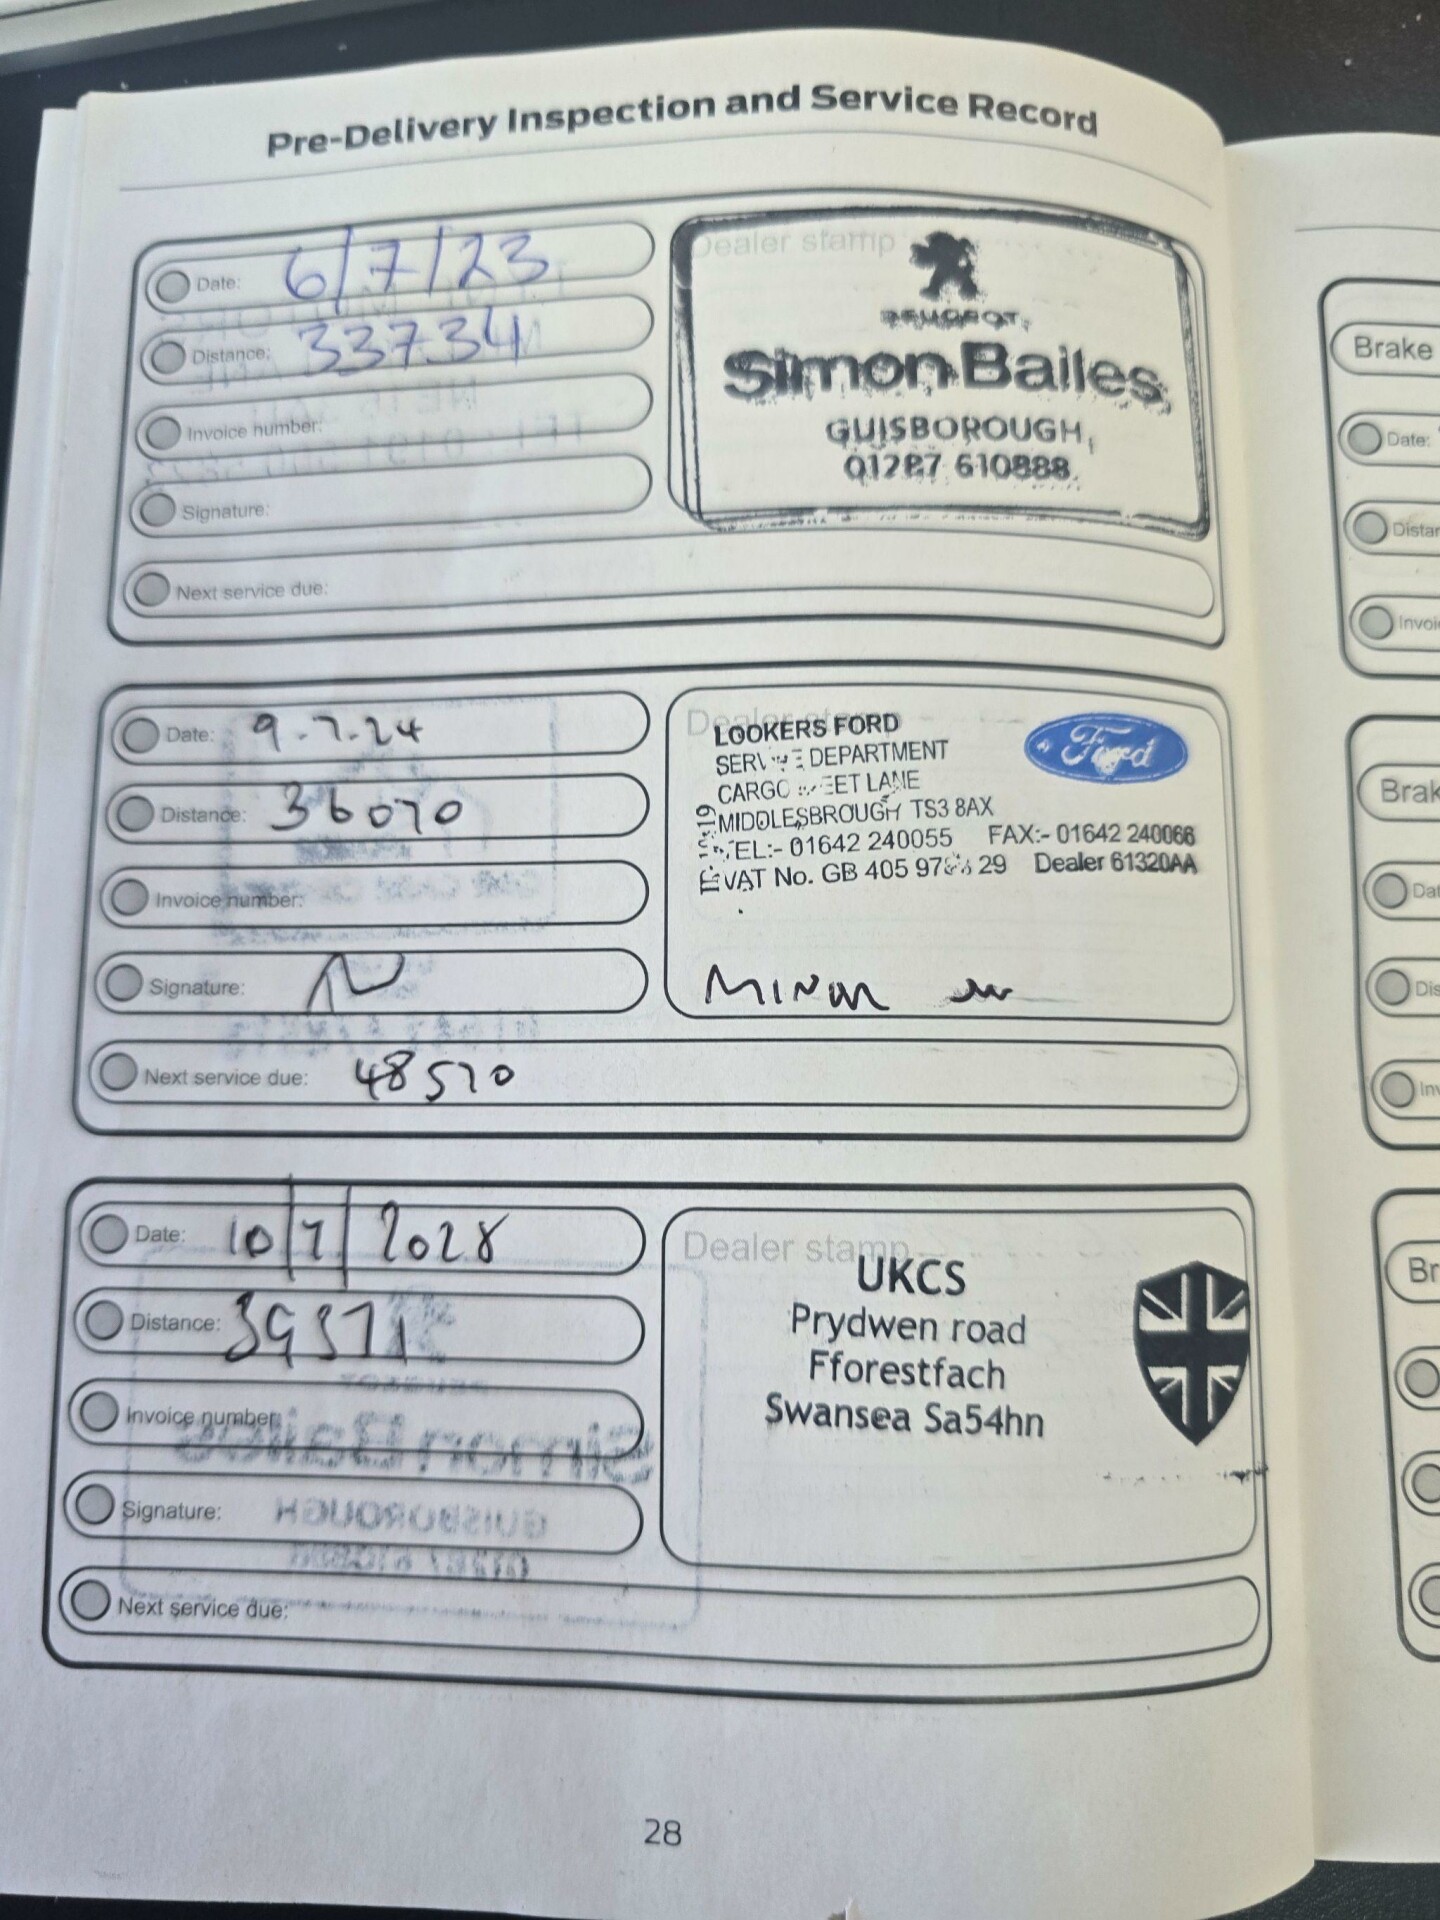 Pre-Delivery Inspection and Service Record
Date: 6/7/23
Distance: 33734
Invoice number:
Signature:
Next service due:
Dealer stamp
PEUGEOT
Simon Bailes
GUISBOROUGH
01287 610888
Date: 9.7.24
Distance: 36070
Invoice number:
Signature:
Next service due: 48570
Dealer stamp
LOOKERS FORD
DEPARTMENT
LANE
MIDDLESBROUGH TS3 8AX
TEL:- 01642 240055 FAX:- 01642 240066
VAT No. GB 405 29 Dealer 61320AA
Ford
MINOR
Date: 10/7/2028
Distance: 39371
Invoice number:
Signature:
Next service due:
Dealer stamp
UKCS
Prydwen road
Fforestfach
Swansea Sa54hn
28
Brake
Date: